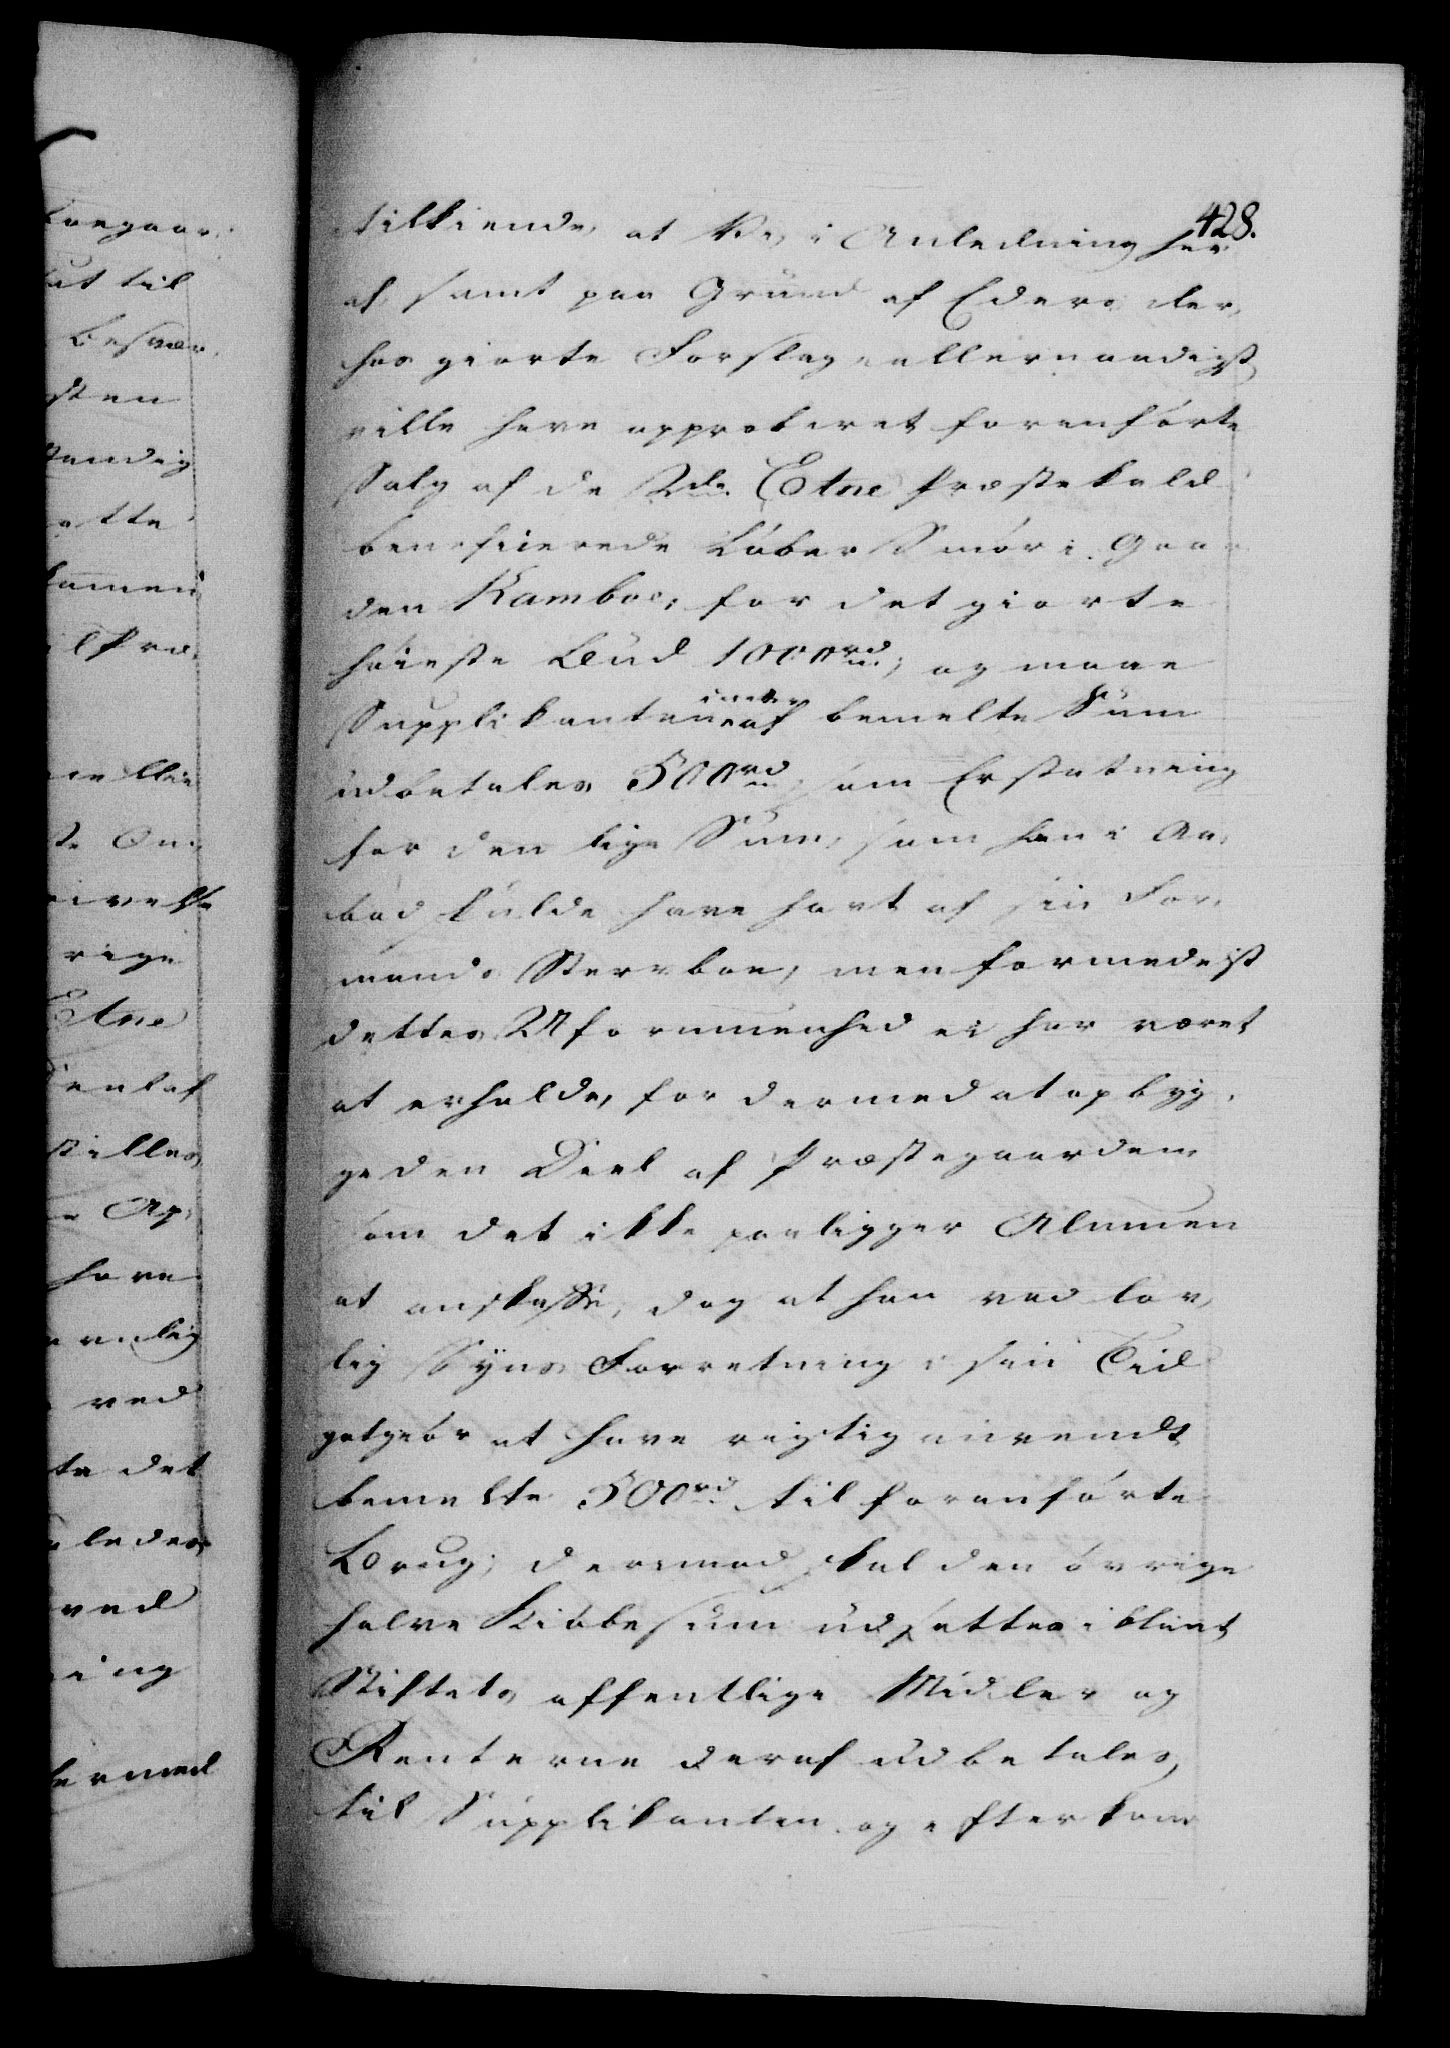 428.
tilkiende, at Vi, i Anledning her
af, samt paa Grund af Eders der,
hos giorte Forslag allernaadigst
ville have approberet foranförte
Salg af de 2de Etne Præstekald
beneficerede Løber Smör i Gaar
den Kamboe, for det giorte
höieste Bud 1000rd; og maae
Supplikanten af bemelte Sum
udbetales 500rd som Erstatning
for den lige Sum, som han i Aa,
bod skulde have havt af sin For,
mands Sterboe, men formedelst
dettes Uformuenhed ei har været
at erholde, for dermed at opbyg,
ge den Deel af Præstegaarden,
som det ikke paaligger Almuen
at anskaffe, dog at han ved lov,
lig Syns Forretning i sin Tid
godtgiör at have rigtig anvendt
bemelte 500rd til foranförte
Brug; derimod skal den övrige
halve Kiöbesum udsættes iblant
Stiftets offentlige Midler og
Renterne deraf udbetales
til Supplikanten og efterkom